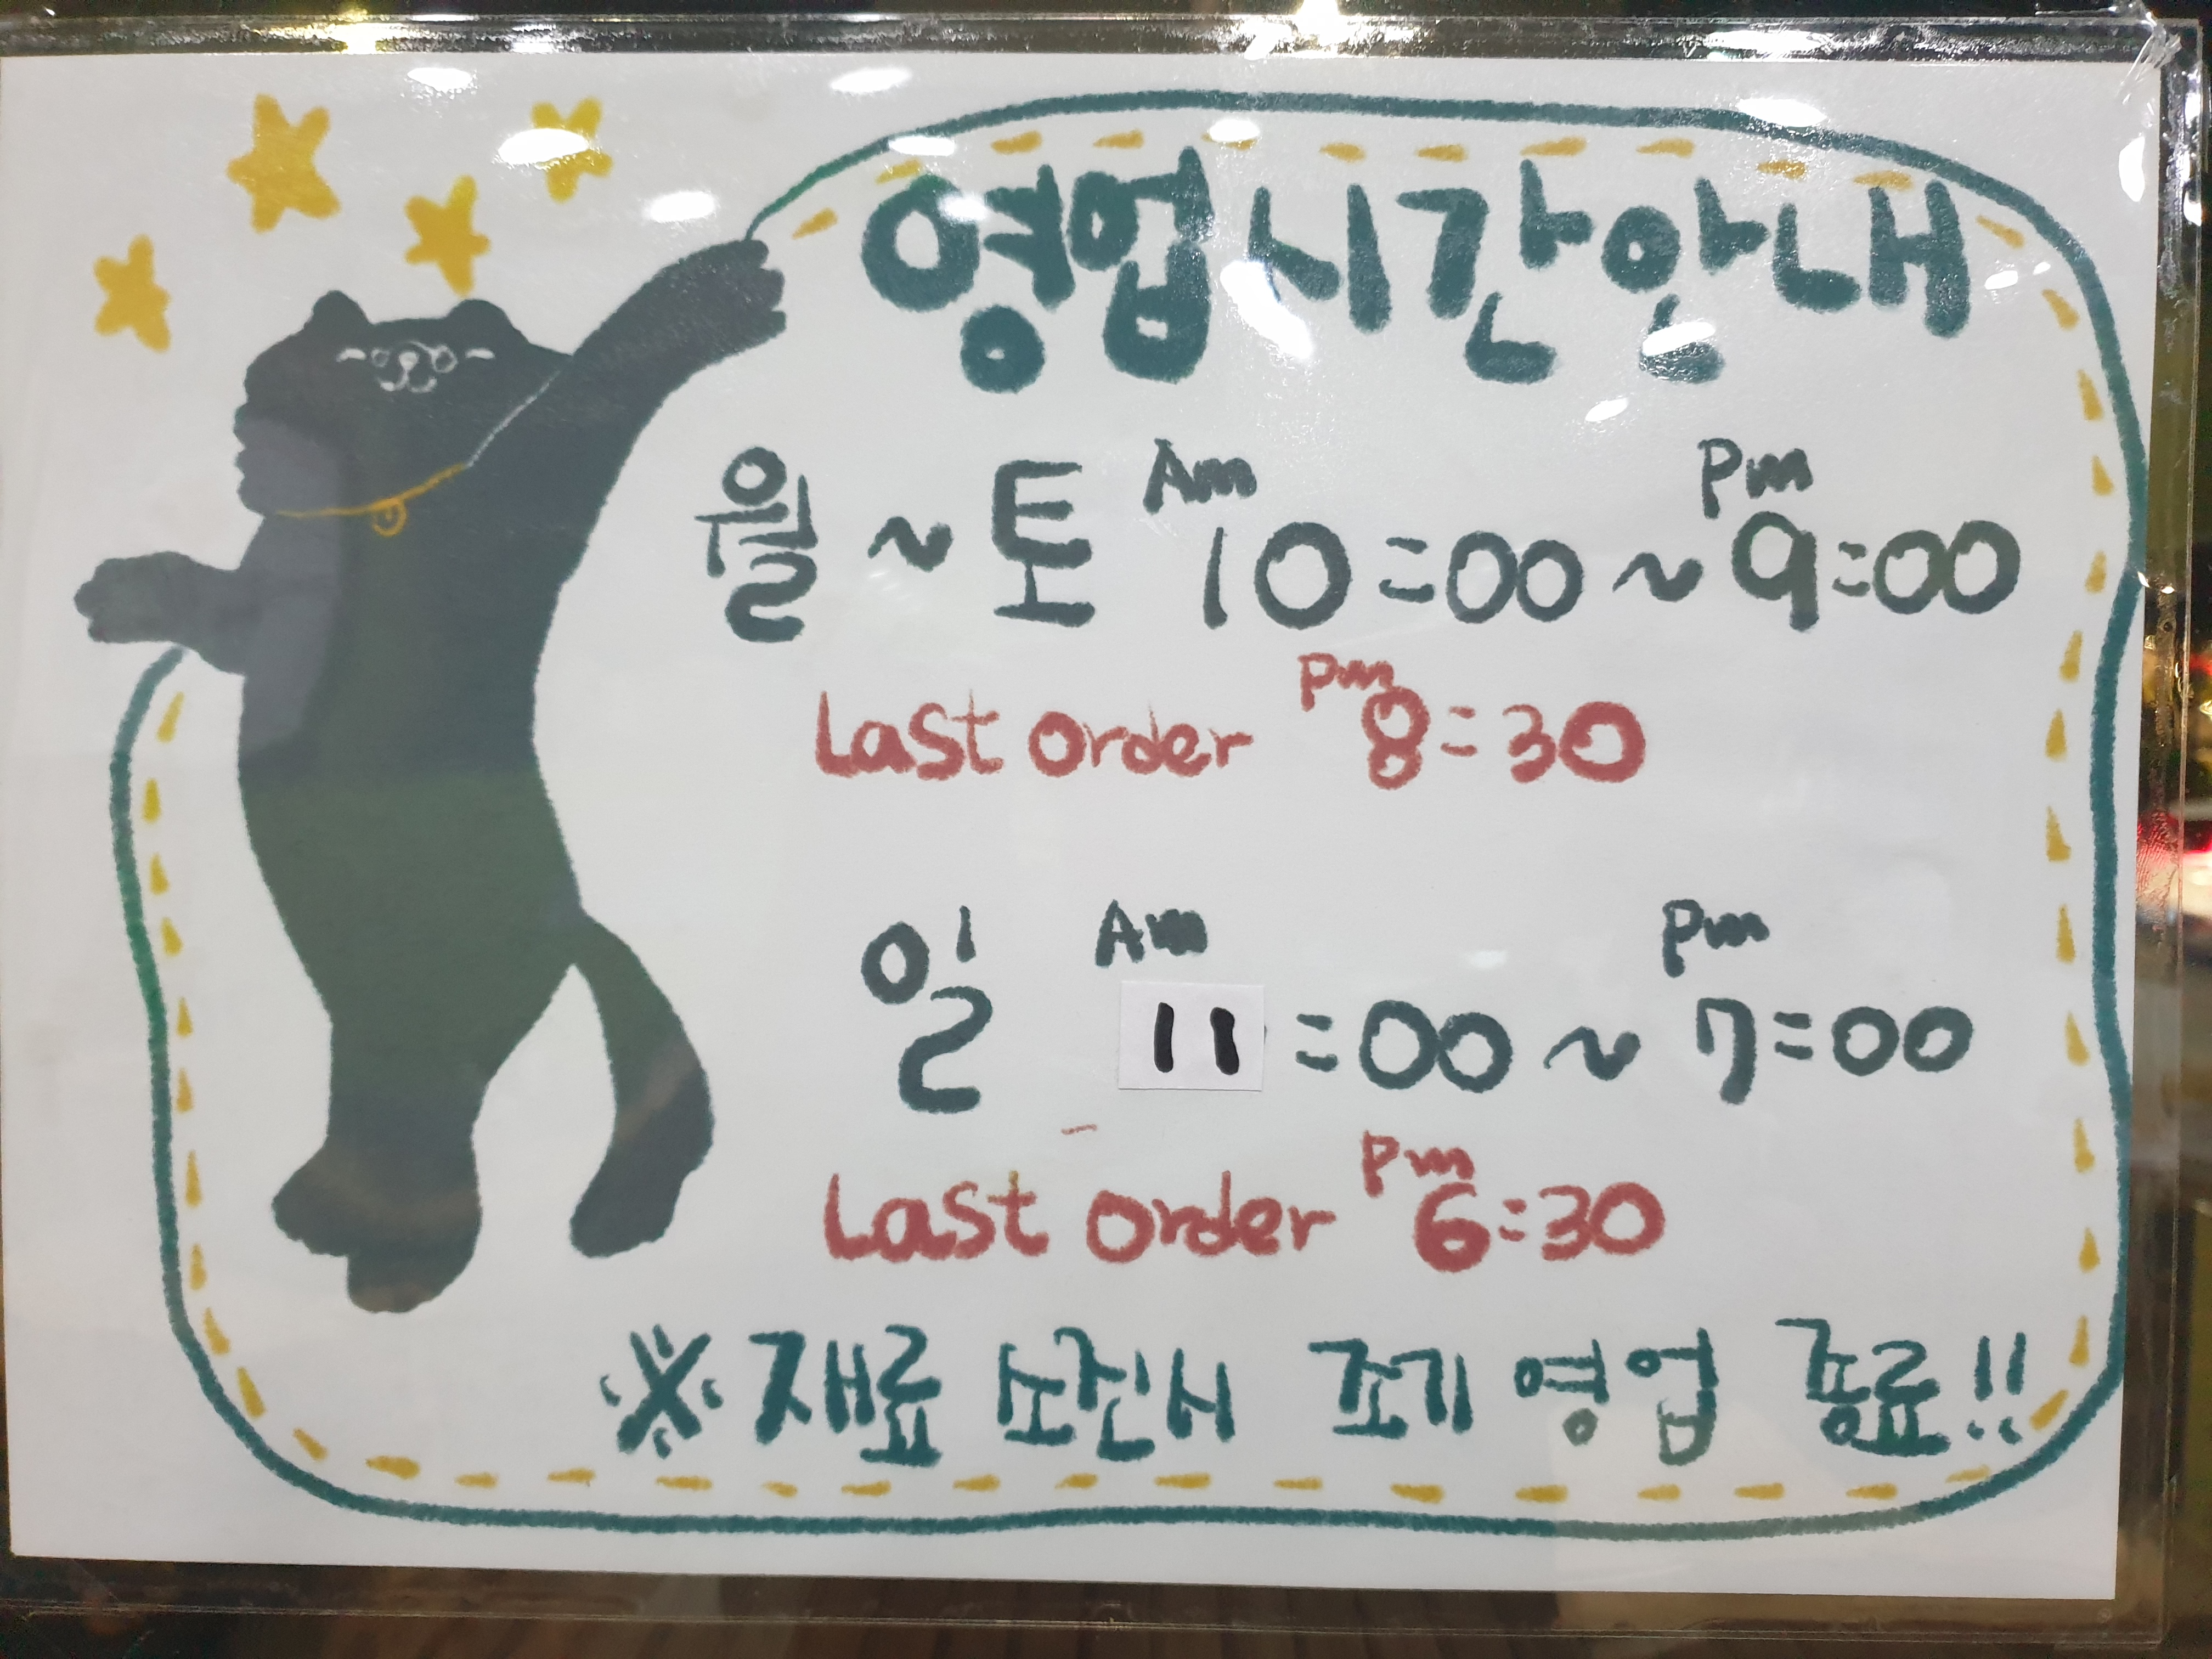 영업시간안내
월 ~ 토 Am 10:00 ~ Pm 9:00
Last order Pm 8:30
일 Am 11:00 ~ Pm 7:00
Last order Pm 6:30
※재료 소진시 조기 영업 종료!!